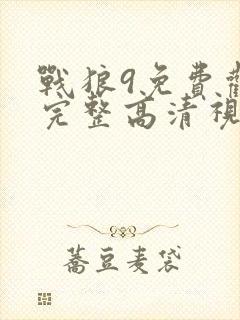 戰狼9免費觀
完整高清視
蕎豆麦袋